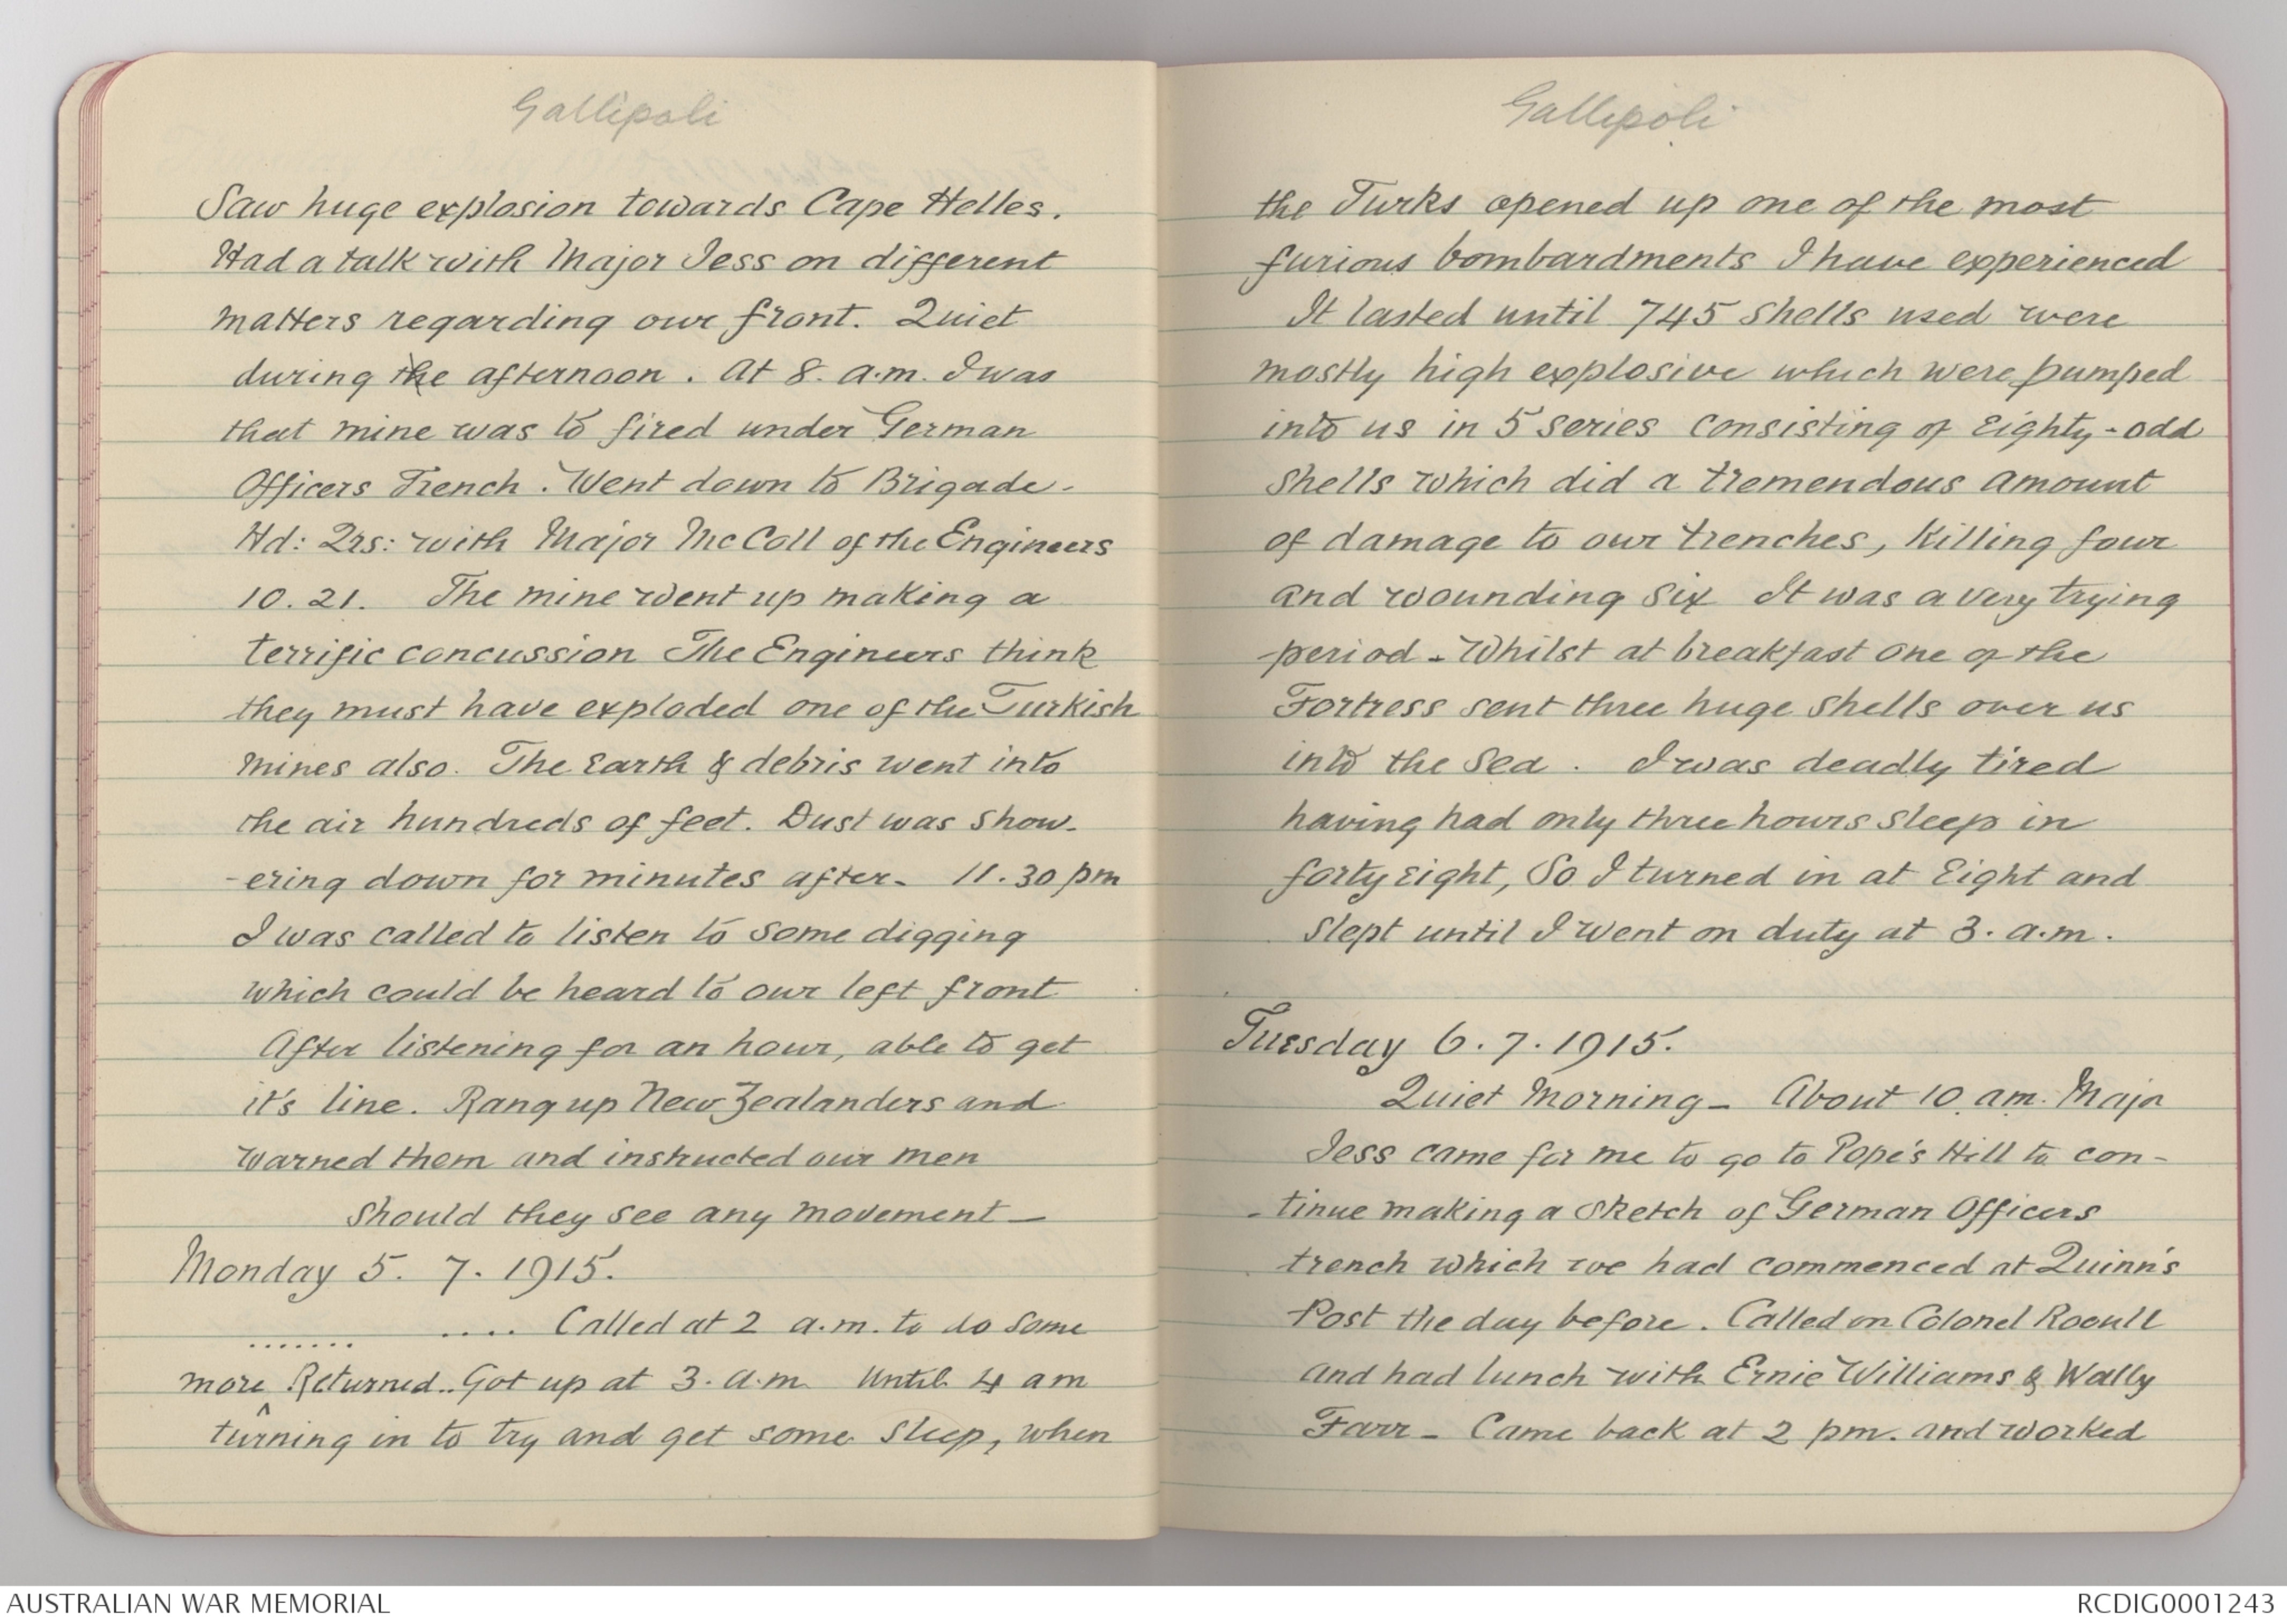 Gallipoli
Saw huge explosion towards Cape Helles.
Had a talk with Major Jess on different
matters regarding our front. Quiet
during the afternoon. At 8. a.m. I was
that mine was to fired under German
Officers Trench. Went down to Brigade-
Hd: Qrs: with Major McColl of the Engineers
10.21. The mine went up making a
terrific concussion The Engineers think
they must have exploded one of the Turkish
mines also. The Earth & debris went into
the air hundreds of feet. Dust was show-
-ering down for minutes after- 11.30 pm
I was called to listen to some digging
which could be heard to our left front
After listening for an hour, able to get
it's line. Rang up New Zealanders and
warned them and instructed our men
should they see any movement -
Monday 5. 7. 1915.
....... .... Called at 2 a.m. to do some
more Returned.. Got up at 3. a.m. Until 4 am
^
turning in to try and get some sleep, when
Gallipoli
the Turks opened up one of the most
furious bombardments I have experienced
It lasted until 745 Shells used were
mostly high explosive which were pumped
into us in 5 series consisting of Eighty-odd
shells which did a tremendous amount
of damage to our trenches, Killing four
and wounding six It was a very trying
period - Whilst at breakfast one of the
Fortress sent three huge shells over us
into the Sea. I was deadly tired
having had only three hours sleep in
forty eight, So I turned in at Eight and
slept until I went on duty at 3. a.m.
Tuesday 6. 7. 1915.
Quiet Morning - About 10 am. Major
Jess came for me to go to Pope's Hill to con-
-tinue making a sketch of German Officers
trench which we had commenced at Quinn's
Post the day before. Called on Colonel
and had lunch with Ernie Williams & Wally
Farr - Came back at 2 pm. and worked
AUSTRALIAN WAR MEMORIAL
RCDIG0001243